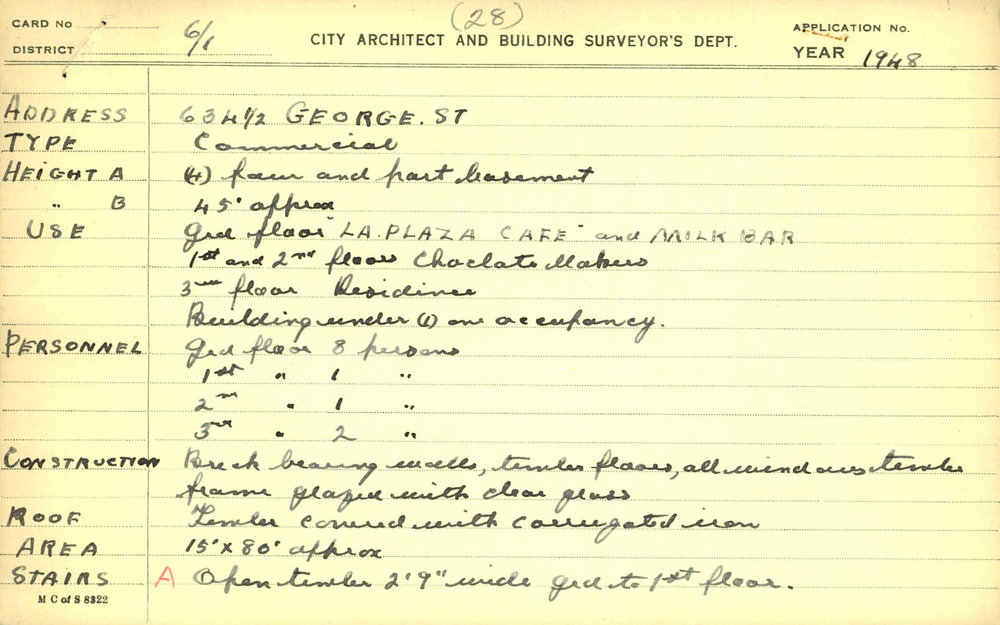 (28)
CARD No
6/1
DISTRICT
CITY ARCHITECT AND BUILDING SURVEYOR'S DEPT.
APPLICATION No.
YEAR 1948
ADDRESS 634 1/2 GEORGE. ST
TYPE Commercial
HEIGHT A (4) four and part basement
" B 45' approx
USE Grd floor "LA. PLAZA CAFE" and MILK BAR
1st and 2nd floors Choclate Makers
3rd floor Residence
Building under (1) one occupancy.
PERSONNEL Grd floor 8 persons
1st " 1 "
2nd " 1 "
3rd " 2 "
CONSTRUCTION Brick bearing walls, timber floors, all windows timber
frame glazed with clear glass
ROOF Timber covered with corrugated iron
AREA 15' x 80' approx
STAIRS A Open timber 2'9" wide grd to 1st floor.
M C of S 8322